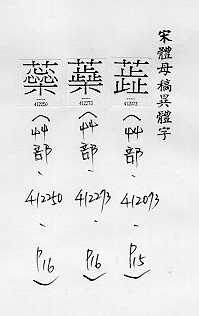 宋體母稿異體字
蕋
412073
(艸部、412073、P15)
412273
(艸部、412273、P16)
蘂
412250
(艸部、412250、P16)